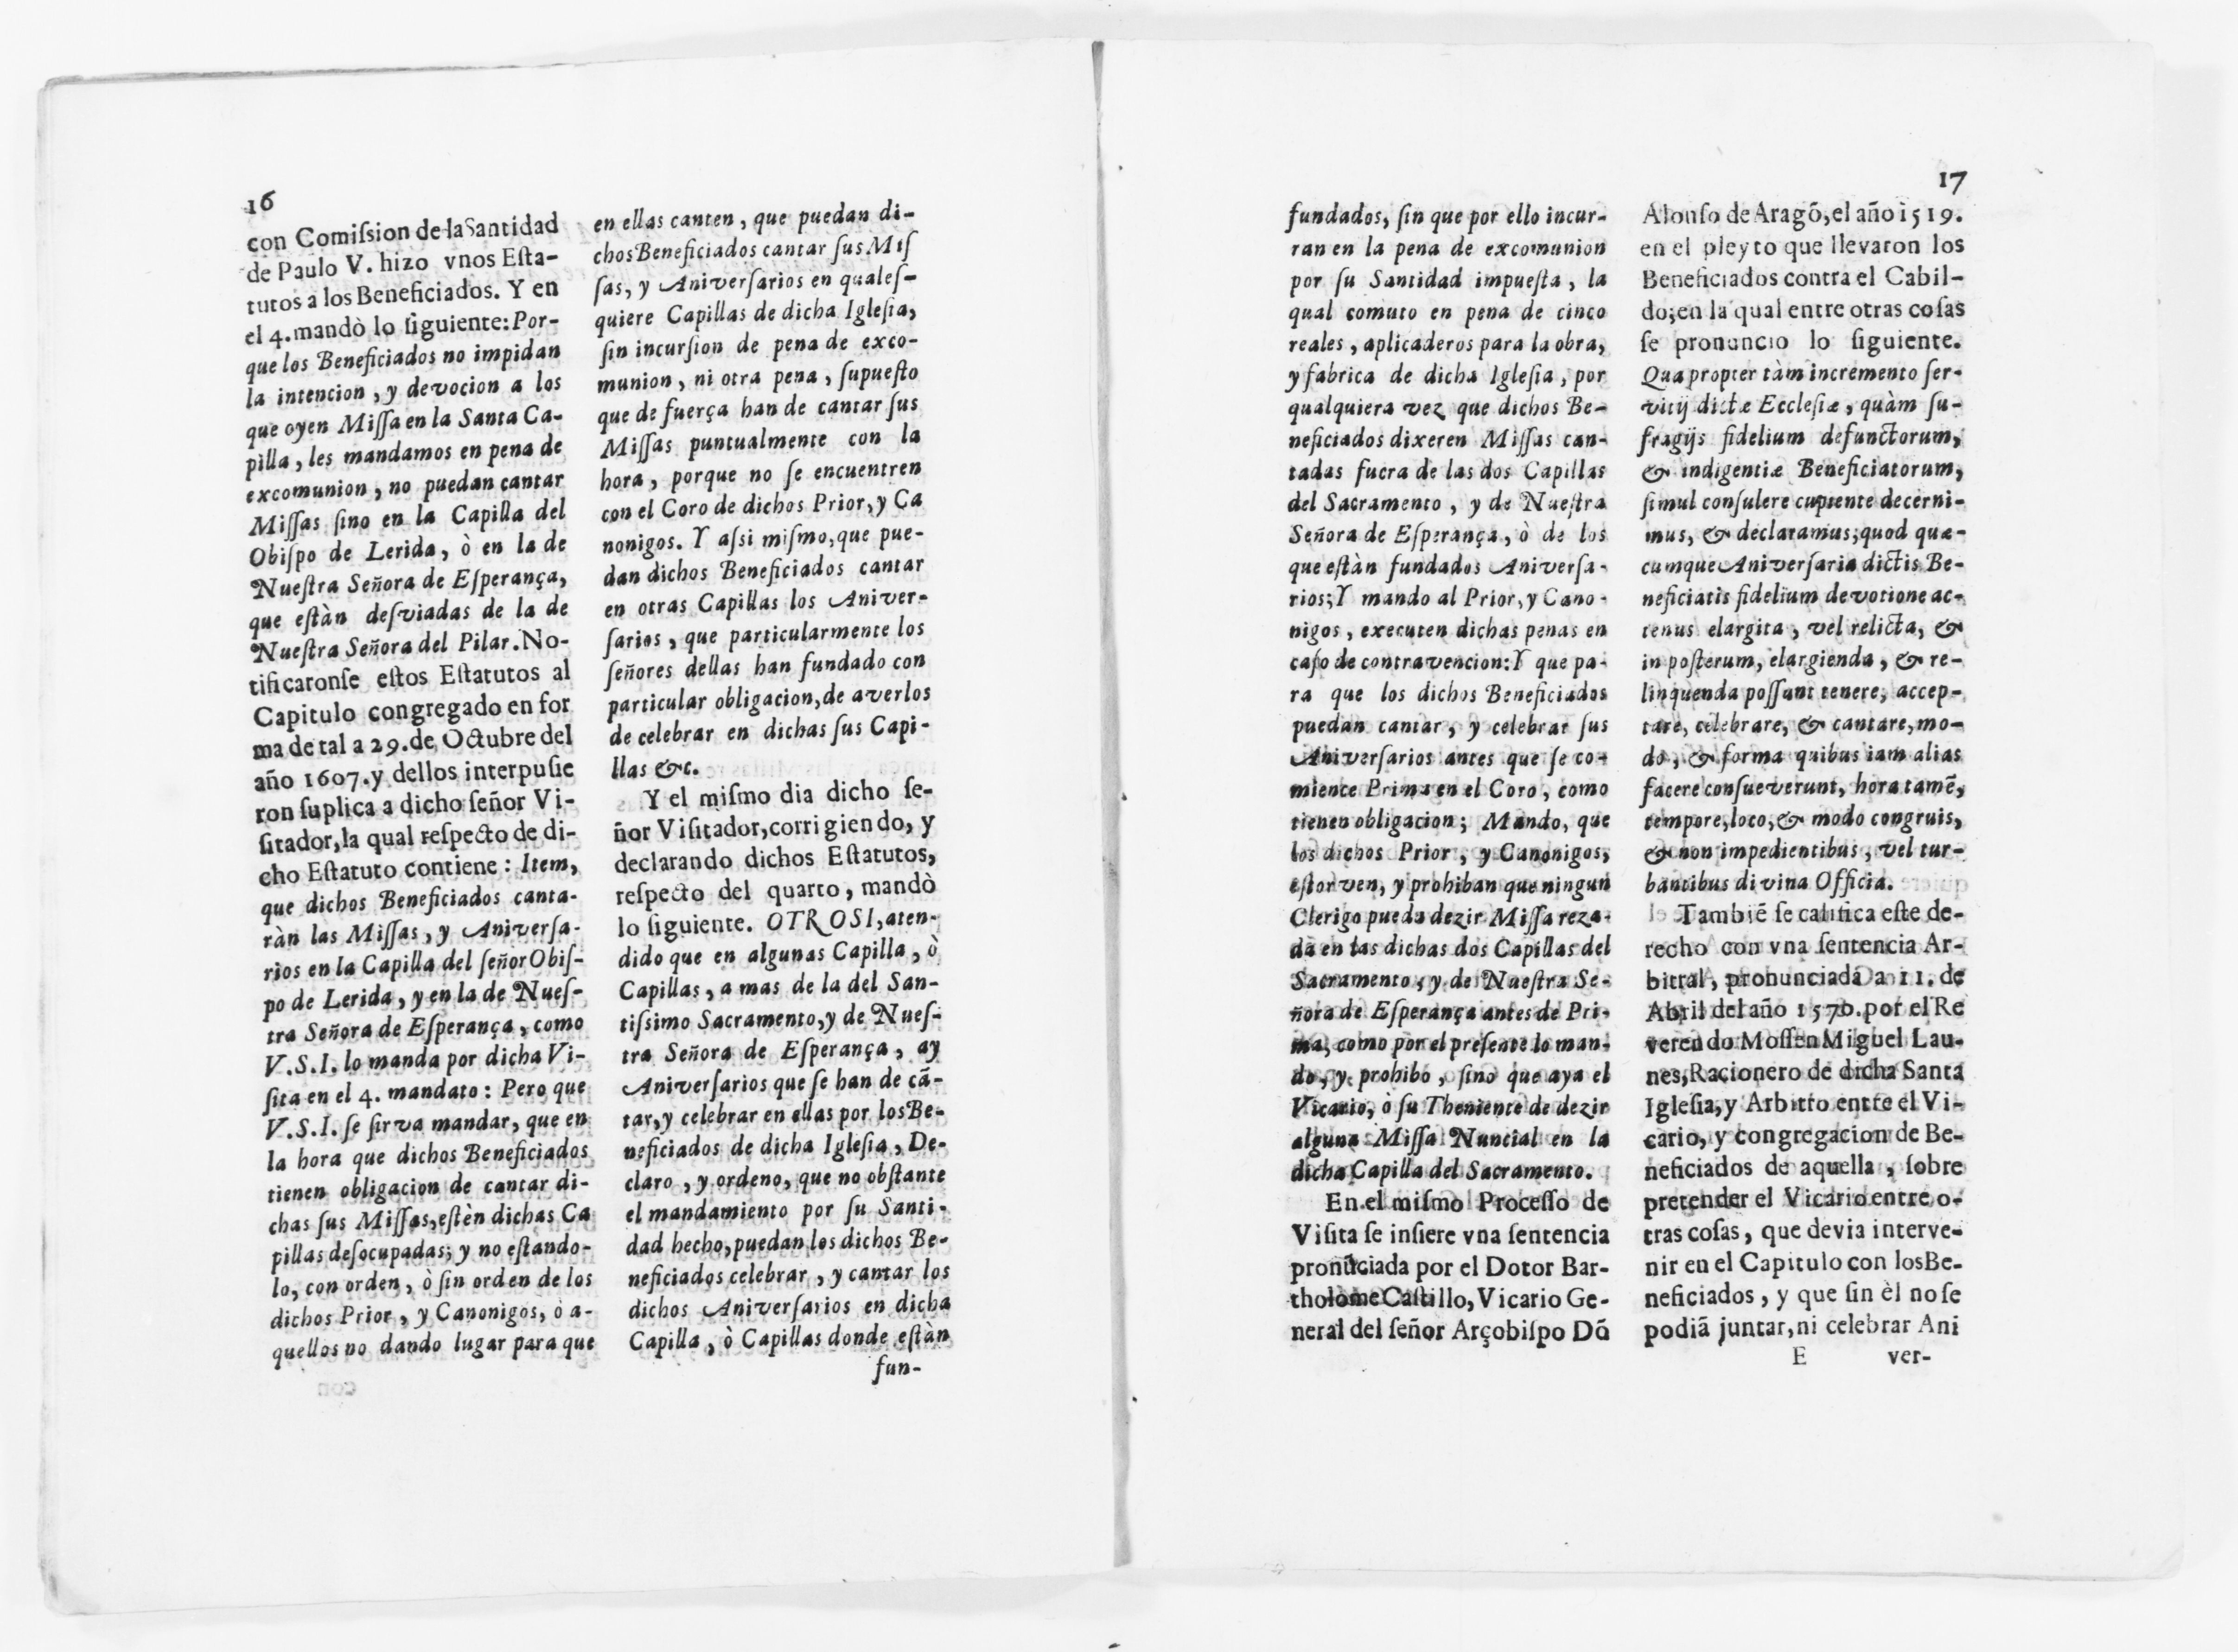 16
con Comiſsion de la Santidad
de Paulo V. hizo vnos Eſta-
tutos a los Beneficiados. Y en
el 4. mandò lo ſiguiente: Por-
que los Beneficiados no impidan
la intencion, y devocion a los
que oyen Miſſa en la Santa Ca-
pilla, les mandamos en pena de
excomunion, no puedan cantar
Miſſas ſino en la Capilla del
Obiſpo de Lerida, ò en la de
Nueſtra Señora de Eſperança,
que eſtàn deſviadas de la de
Nueſtra Señora del Pilar. No-
tificaronſe eſtos Eſtatutos al
Capitulo congregado en for
ma de tal a 29. de Octubre del
año 1607. y dellos interpuſie
ron ſuplica a dicho ſeñor Vi-
ſitador, la qual reſpecto de di-
cho Eſtatuto contiene: Item,
que dichos Beneficiados canta-
ràn las Miſſas, y Aniverſa-
rios en la Capilla del ſeñor Obiſ-
po de Lerida, y en la de Nueſ-
tra Señora de Eſperança, como
V.S.I. lo manda por dicha Vi-
ſita en el 4. mandato: Pero que
V.S.I. ſe ſirva mandar, que en
la hora que dichos Beneficiados
tienen obligacion de cantar di-
chas ſus Miſſas, eſtèn dichas Ca
pillas deſocupadas; y no eſtando-
lo, con orden, ò ſin orden de los
dichos Prior, y Canonigos, ò a-
quellos no dando lugar para que
en ellas canten, que puedan di-
chos Beneficiados cantar ſus Miſ
ſas, y Aniverſarios en qualeſ-
quiere Capillas de dicha Igleſia,
ſin incurſion de pena de exco-
munion, ni otra pena, ſupueſto
que de fuerça han de cantar ſus
Miſſas puntualmente con la
hora, porque no ſe encuentren
con el Coro de dichos Prior, y Ca
nonigos. Y aſsi miſmo, que pue-
dan dichos Beneficiados cantar
en otras Capillas los Aniver-
ſarios, que particularmente los
ſeñores dellas han fundado con
particular obligacion, de averlos
de celebrar en dichas ſus Capi-
llas &c.
Y el miſmo dia dicho ſe-
ñor Viſitador, corrigiendo, y
declarando dichos Eſtatutos,
reſpecto del quarto, mandò
lo ſiguiente. OTROSI, aten-
dido que en algunas Capilla, ò
Capillas, a mas de la del San-
tiſsimo Sacramento, y de Nueſ-
tra Señora de Eſperança, ay
Aniverſarios que ſe han de cã-
tar, y celebrar en ellas por los Be-
neficiados de dicha Igleſia, De-
claro, y ordeno, que no obſtante
el mandamiento por ſu Santi-
dad hecho, puedan los dichos Be-
neficiados celebrar, y cantar los
dichos Aniverſarios en dicha
Capilla, ò Capillas donde eſtàn
fun-
17
fundados, ſin que por ello incur-
ran en la pena de excomunion
por ſu Santidad impueſta, la
qual comuto en pena de cinco
reales, aplicaderos para la obra,
y fabrica de dicha Igleſia, por
qualquiera vez que dichos Be-
neficiados dixeren Miſſas can-
tadas fuera de las dos Capillas
del Sacramento, y de Nueſtra
Señora de Eſperança, ò de los
que eſtàn fundados Aniverſa-
rios; Y mando al Prior, y Cano-
nigos, executen dichas penas en
caſo de contravencion: Y que pa-
ra que los dichos Beneficiados
puedan cantar, y celebrar ſus
Aniverſarios antes que ſe co-
mience Prima en el Coro, como
tienen obligacion; Mando, que
los dichos Prior, y Canonigos,
eſtorven, y prohiban que ningun
Clerigo pueda dezir Miſſa reza-
da en las dichas dos Capillas del
Sacramento, y de Nueſtra Se-
ñora de Eſperança antes de Pri-
ma, como por el preſente lo man-
do, y prohibo, ſino que aya el
Vicario, ò ſu Theniente de dezir
alguna Miſſa Nuncial en la
dicha Capilla del Sacramento.
En el miſmo Proceſſo de
Viſita ſe inſiere vna ſentencia
pronũciada por el Dotor Bar-
tholome Caſtillo, Vicario Ge-
neral del ſeñor Arçobiſpo Dõ
Alonſo de Aragõ, el año 1519.
en el pleyto que llevaron los
Beneficiados contra el Cabil-
do; en la qual entre otras coſas
ſe pronuncio lo ſiguiente.
Quapropter tàm incremento ſer-
vitij dictæ Eccleſiæ, quàm ſu-
fragijs fidelium defunctorum,
& indigentiæ Beneficiatorum,
ſimul conſulere cupiente decerni-
mus, & declaramus; quod quæ-
cumque Aniverſaria dictis Be-
neficiatis fidelium devotione ac-
tenus elargita, vel relicta, &
in poſterum, elargienda, & re-
linquenda poſſunt tenere, accep-
tare, celebrare, & cantare, mo-
do, & forma quibus iam alias
facere conſueverunt, hora tamẽ,
tempore, loco, & modo congruis,
& non impedientibus, vel tur-
bantibus divina Officia.
Tambiẽ ſe califica eſte de-
recho con vna ſentencia Ar-
bitral, pronunciada a 11. de
Abril del año 1570. por el Re
verendo Moſſen Miguel Lau-
nes, Racionero de dicha Santa
Igleſia, y Arbitro entre el Vi-
cario, y congregacion de Be-
neficiados de aquella, ſobre
pretender el Vicario entre o-
tras coſas, que devia interve-
nir en el Capitulo con los Be-
neficiados, y que ſin èl no ſe
podiã juntar, ni celebrar Ani
E ver-